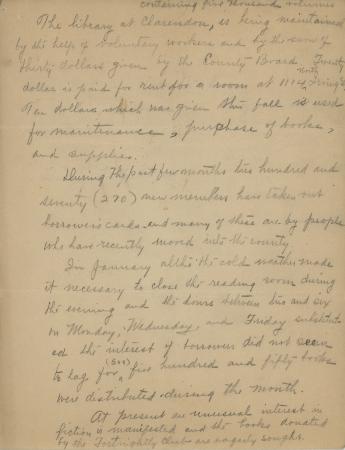 containing five thousand volumes
The library at Clarendon, is being maintained
by the help of voluntary workers and by the sum of
thirty dollars given by the County Board. Twenty
dollar is paid for rent for a room at 1114 North Irving St
Ten dollars which was given this fall is used
for maintenance, purchase of books,
and supplies.
During the past few months two hundred and
seventy (270) new members have taken out
borrowers cards and many of these are by people
who have recently moved into the county
In January altho the cold weather made
it necessary to close the reading room during
the evening and the hours between two and six
on Monday, Wednesday, and Friday substitut
ed the interest of borrowers did not seem
to lag for (550) five hundred and fifty books
were distributed during the month.
At present an unusual interest in
fiction is manifested and the books donated
by the Fortnightly Club are eagerly sought.